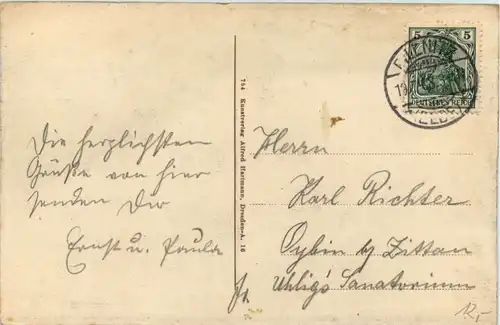 5 5
DEUTSCHES REICH
Die herzlichsten
Grüße von hier
senden Dir
Ernst u. Paula
754 Kunstverlag Alfred Hartmann, Dresden-A. 16
Herrn
Karl Richter
Oybin b/ Zittau
Uhlig's Sanatorium
12,-